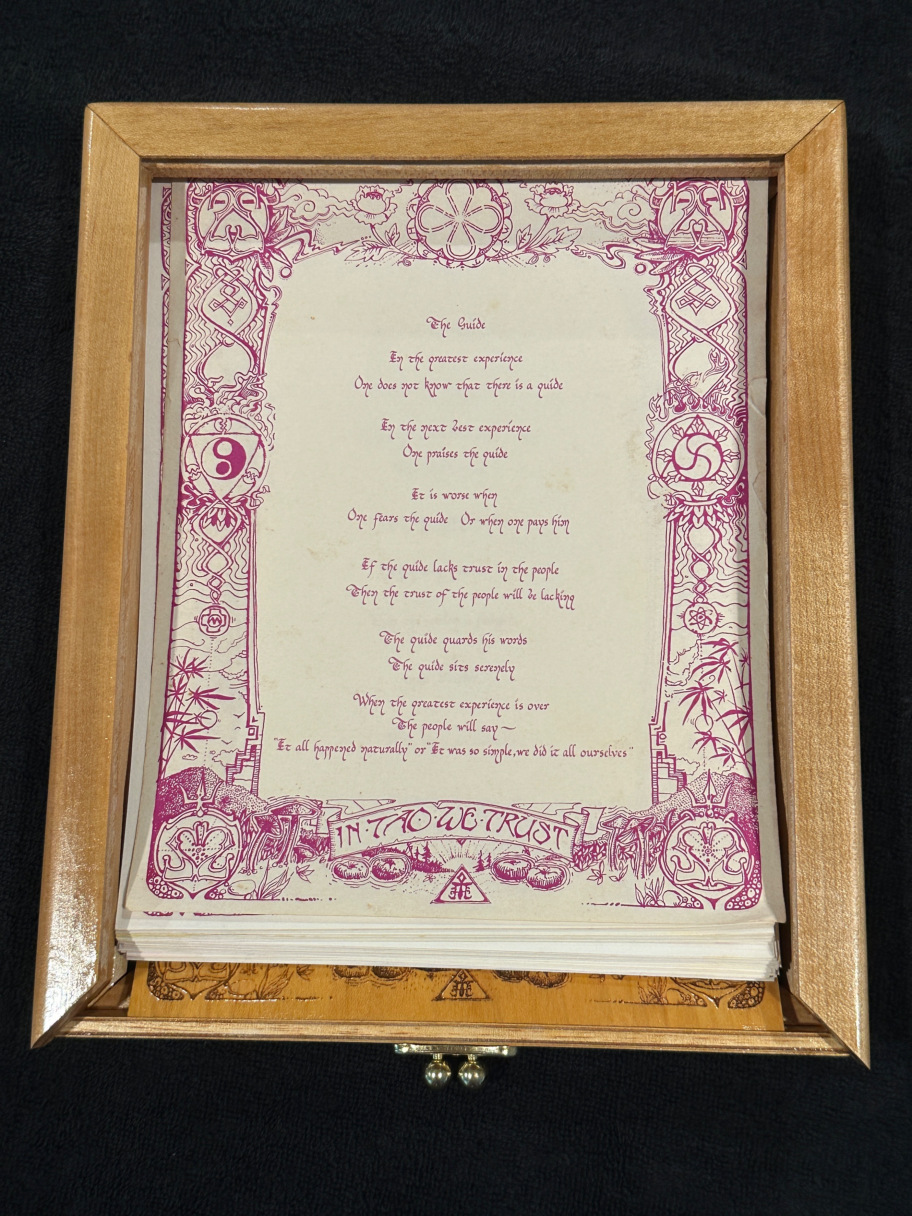 The Guide
In the greatest experience
One does not know that there is a guide
In the next best experience
One praises the guide
It is worse when
One fears the guide Or when one pays him
If the guide lacks trust in the people
Then the trust of the people will be lacking
The guide guards his words
The guide sits serenely
When the greatest experience is over
The people will say —
"It all happened naturally" or "It was so simple, we did it all ourselves"
IN·TAO·WE·TRUST